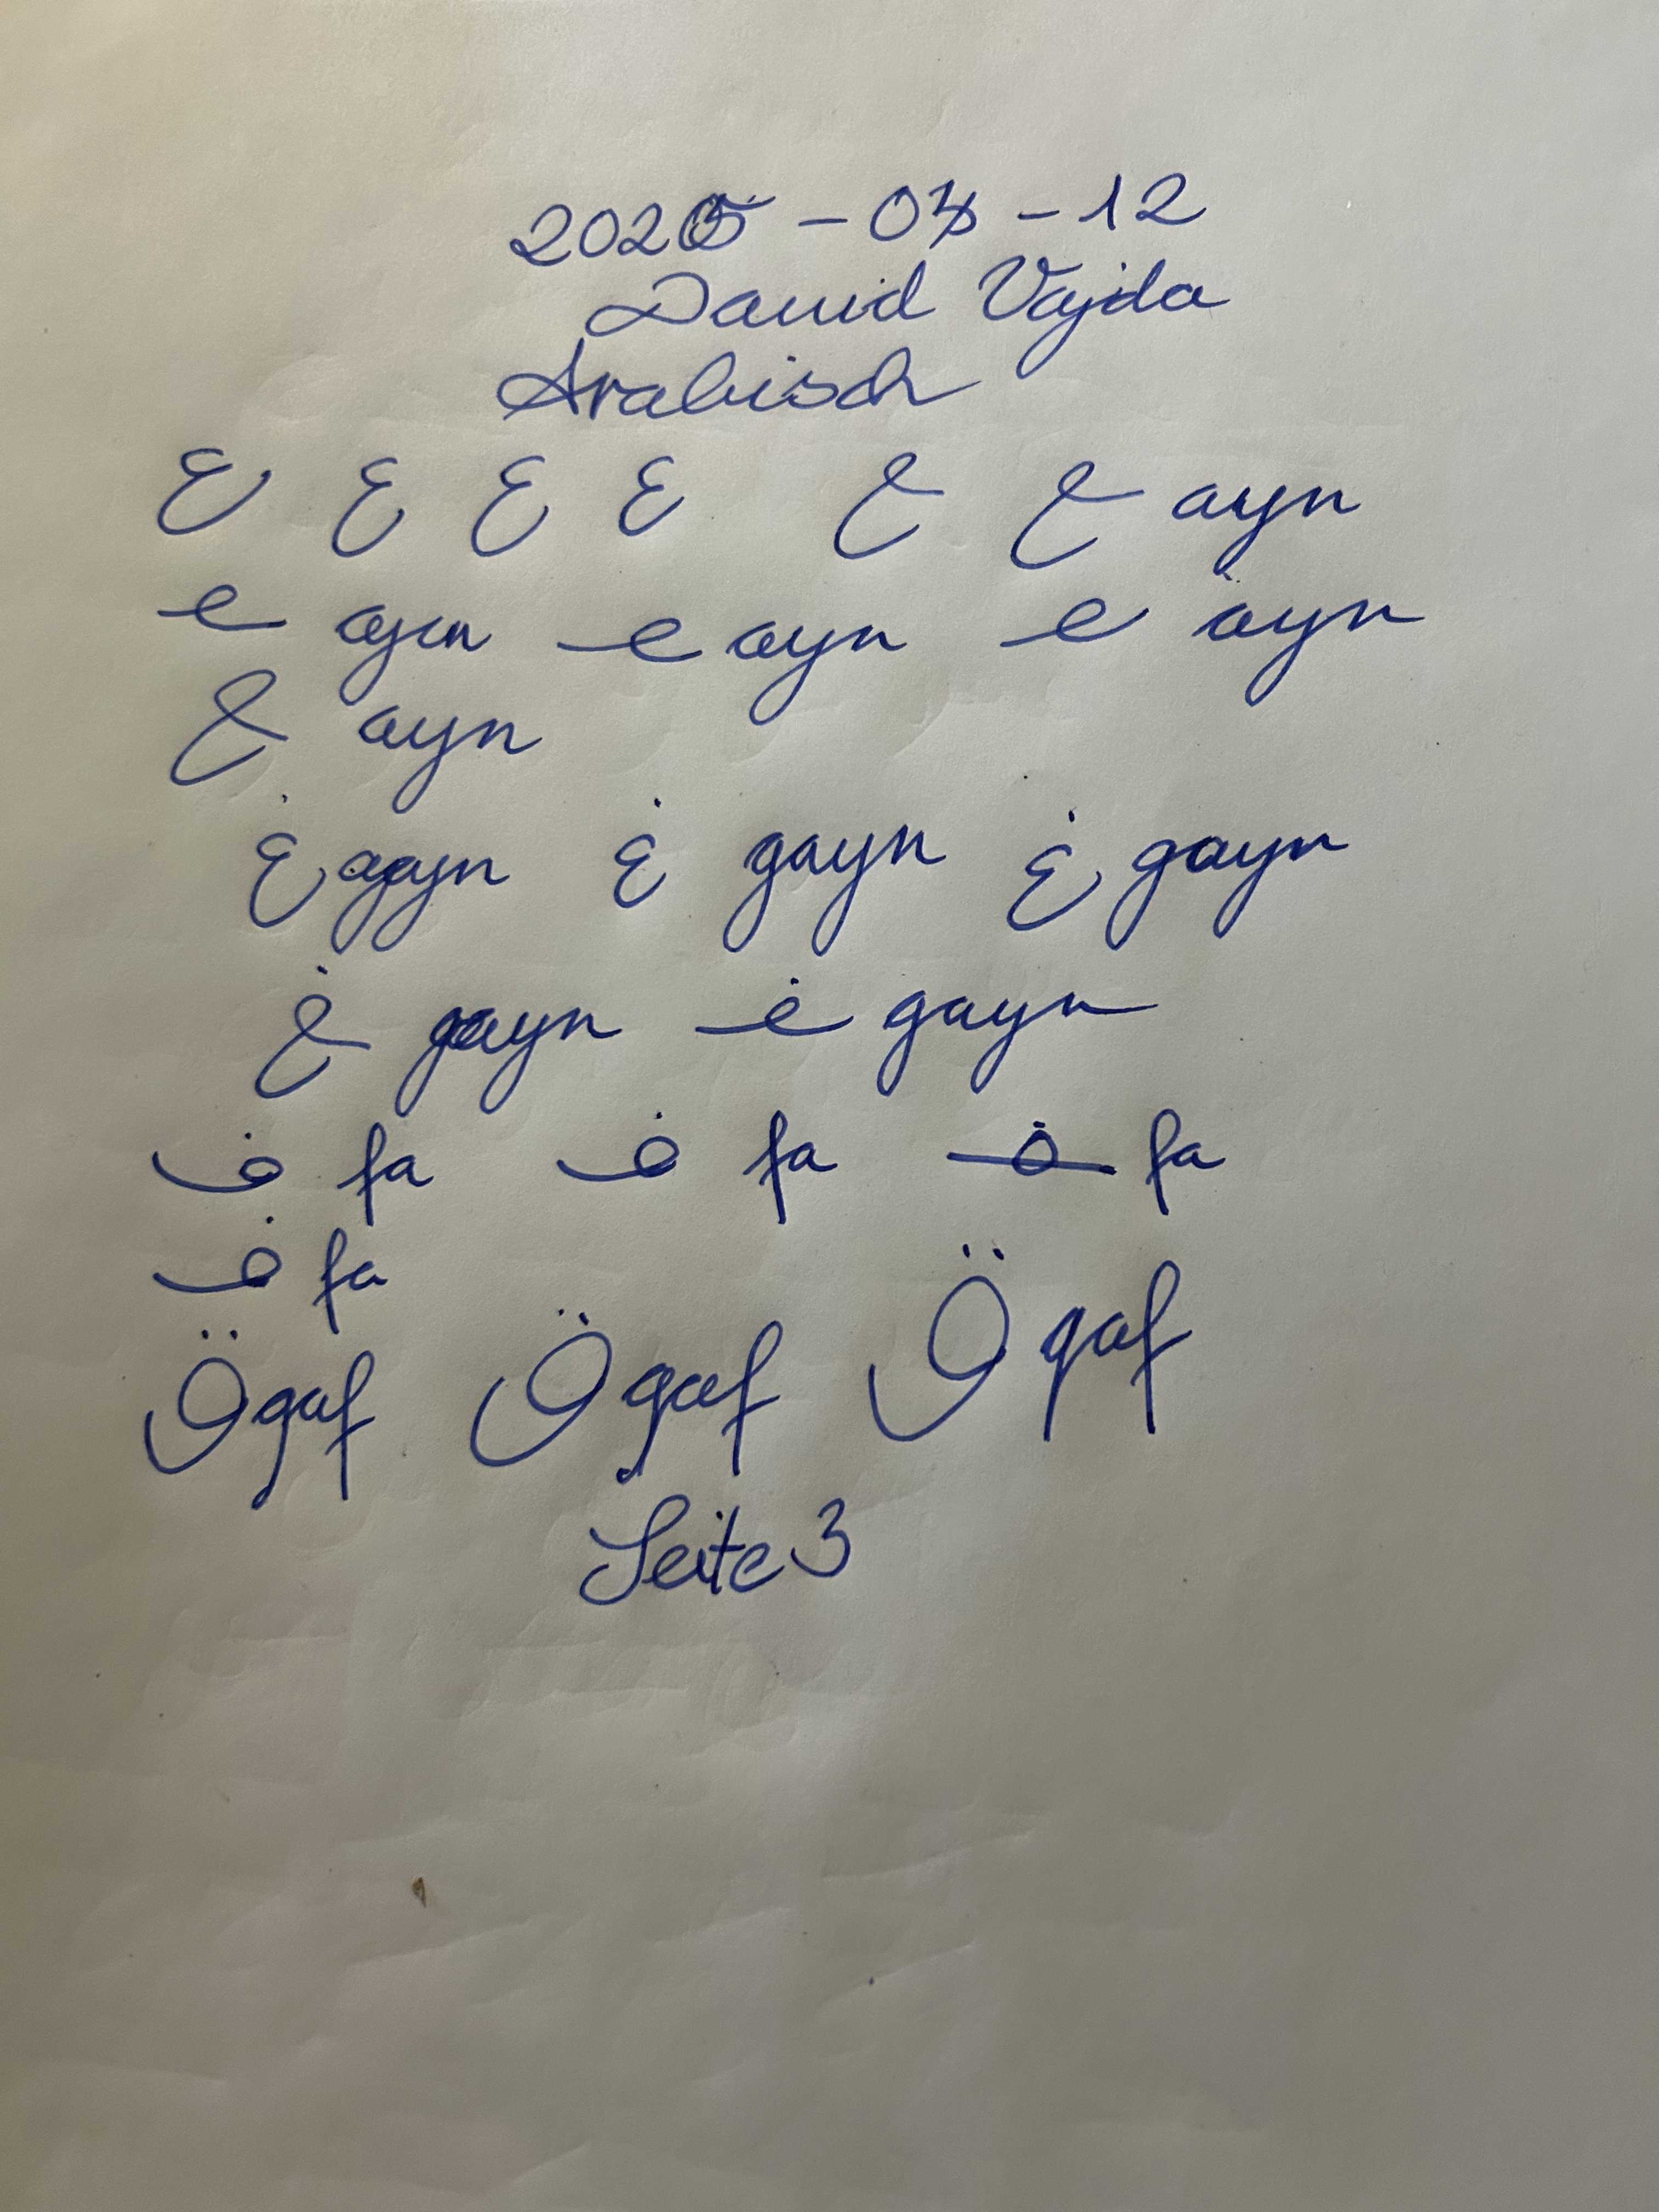 2025 - 04 - 12
David Vajda
Arabisch
ع ع ع ع ع ع ayn
ع ayn ع ayn ع ayn
ع ayn
غ gayn غ gayn غ gayn
غ gayn غ gayn
ف fa ف fa ف fa
ف fa
ق qaf ق qaf ق qaf
Seite 3